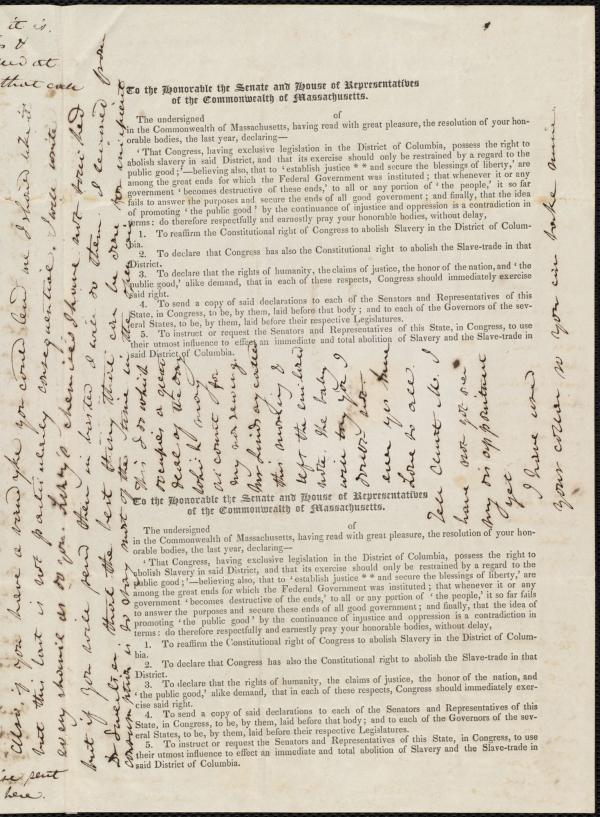 To the Honorable the Senate and House of Representatives
of the Commonwealth of Massachusetts.
The undersigned of
in the Commonwealth of Massachusetts, having read with great pleasure, the resolution of your hon-
orable bodies, the last year, declaring—
'That Congress, having exclusive legislation in the District of Columbia, possess the right to
abolish slavery in said District, and that its exercise should only be restrained by a regard to the
public good;'—believing also, that to 'establish justice * * and secure the blessings of liberty,' are
among the great ends for which the Federal Government was instituted; that whenever it or any
government 'becomes destructive of these ends,' to all or any portion of 'the people,' it so far
fails to answer the purposes and secure the ends of all good government; and finally, that the idea
of promoting 'the public good' by the continuance of injustice and oppression is a contradiction in
terms: do therefore respectfully and earnestly pray your honorable bodies, without delay,
1. To reaffirm the Constitutional right of Congress to abolish Slavery in the District of Colum-
bia.
2. To declare that Congress has also the Constitutional right to abolish the Slave-trade in that
District.
3. To declare that the rights of humanity, the claims of justice, the honor of the nation, and 'the
public good,' alike demand, that in each of these respects, Congress should immediately exercise
said right.
4. To send a copy of said declarations to each of the Senators and Representatives of this
State, in Congress, to be, by them, laid before that body; and to each of the Governors of the sev-
eral States, to be, by them, laid before their respective Legislatures.
5. To instruct or request the Senators and Representatives of this State, in Congress, to use
their utmost influence to effect an immediate and total abolition of Slavery and the Slave-trade in
said District of Columbia.
This I do which
occupies a great
deal of the day
which may
account for
my not sewing
this morning &
left the
note. The baby
will try you I
doubt not
ever yes fine
Love to all.
Tell Aunt M. I
have not got over
my disappointment
yet.
I have used
your collar so you can take mine.
To the Honorable the Senate and House of Representatives
of the Commonwealth of Massachusetts.
The undersigned of
in the Commonwealth of Massachusetts, having read with great pleasure, the resolution of your hon-
orable bodies, the last year, declaring—
'That Congress, having exclusive legislation in the District of Columbia, possess the right to
abolish Slavery in said District, and that its exercise should only be restrained by a regard to the
public good;'—believing also, that to 'establish justice * * and secure the blessings of liberty,' are
among the great ends for which the Federal Government was instituted; that whenever it or any
government 'becomes destructive of these ends,' to all or any portion of 'the people,' it so far fails
to answer the purposes and secure these ends of all good government; and finally, that the idea of
promoting 'the public good' by the continuance of injustice and oppression is a contradiction in
terms: do therefore respectfully and earnestly pray your honorable bodies, without delay,
1. To reaffirm the Constitutional right of Congress to abolish Slavery in the District of Colum-
bia.
2. To declare that Congress has also the Constitutional right to abolish the Slave-trade in that
District.
3. To declare that the rights of humanity, the claims of justice, the honor of the nation, and
'the public good,' alike demand, that in each of these respects, Congress should immediately exer-
cise said right.
4. To send a copy of said declarations to each of the Senators and Representatives of this
State, in Congress, to be, by them, laid before that body; and to each of the Governors of the sev-
eral States, to be, by them, laid before their respective Legislatures.
5. To instruct or request the Senators and Representatives of this State, in Congress, to use
their utmost influence to effect an immediate and total abolition of Slavery and the Slave-trade in
said District of Columbia.
it is.
&
at
that call
Also if you have a you could lend me I should like it
but this last is not particularly consequential. I will write
every as do you. chemises I have not touched
but if you will send them in basted I will do them. I learned from
that the best thing that can be done for incipient
consumption is to stay most of the time in the open air
sent
here.